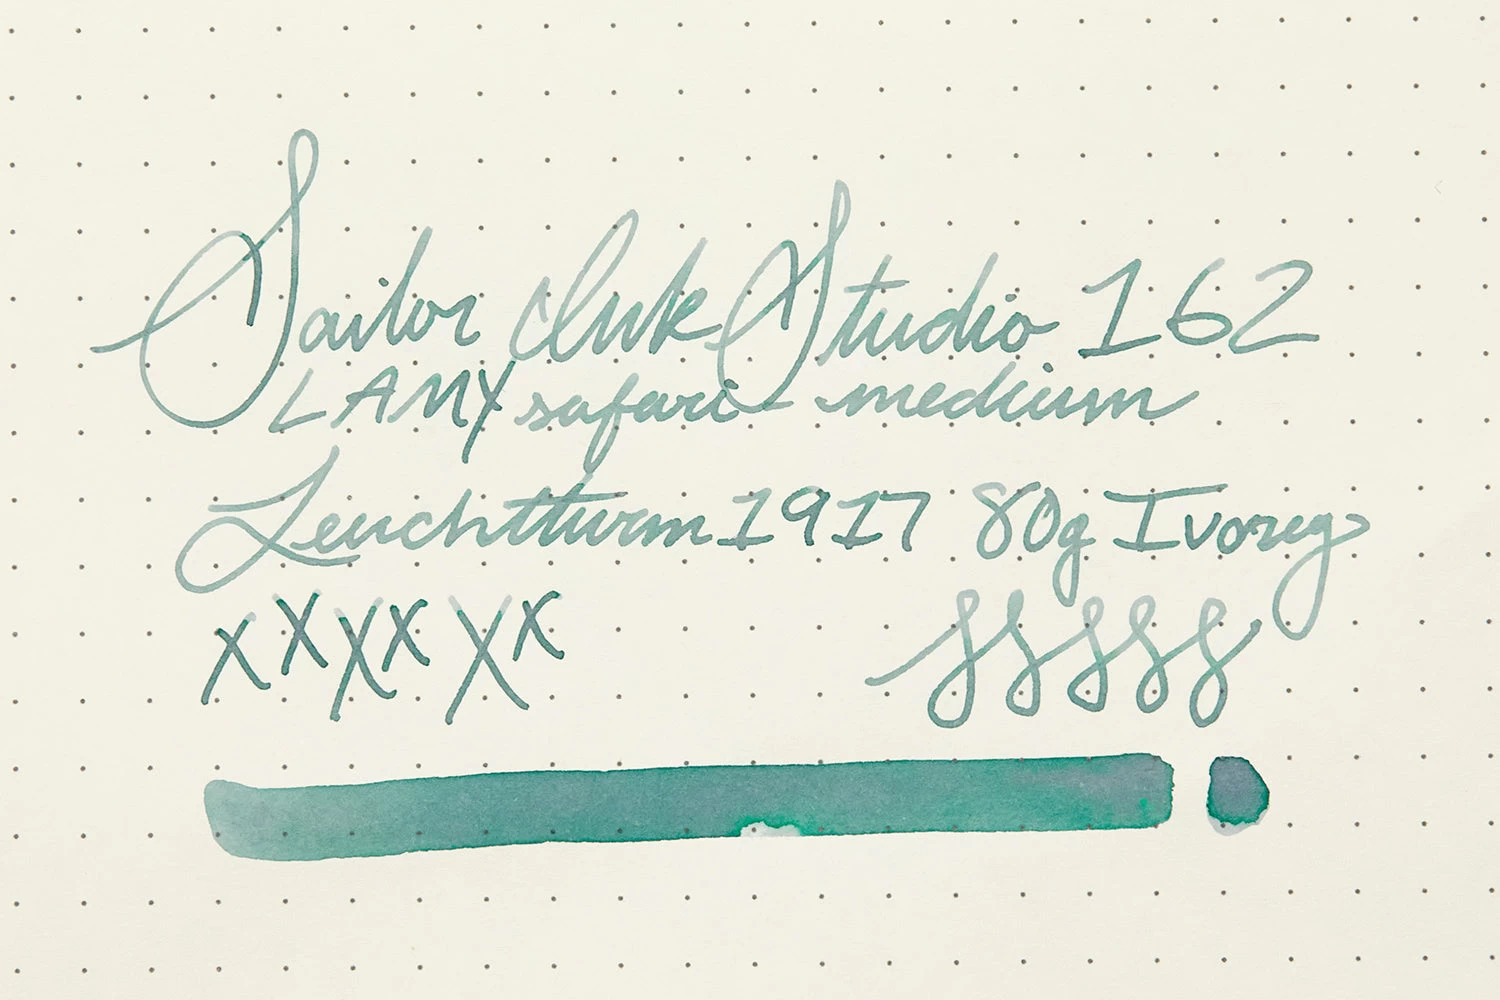 Sailor Ink Studio 162
LAMY safari - medium
Leuchtturm1917 80g Ivory
xxxxxx